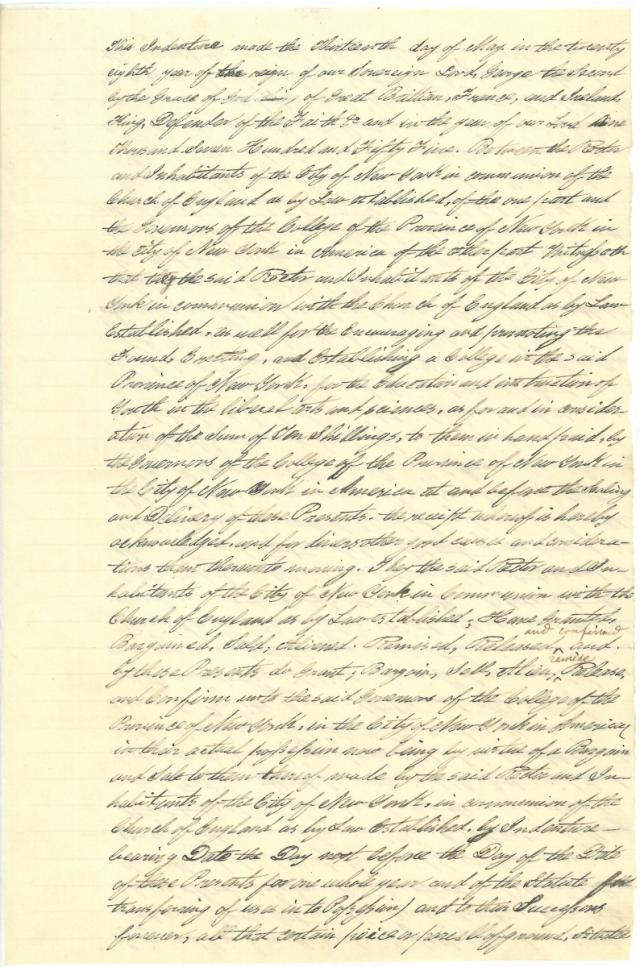 This Indenture made the Thirteenth day of May in the twenty
eighth year of the reign of our Sovereign Lord, George the Second
by the Grace of God King of Great Brittian, France, and Ireland
King, Defender of the Faith &c and in the year of our Lord One
Thousand Seven Hundred and Fifty Five. Between the Rector
and Inhabitants of the City of New York in communion of the
Church of England as by Law established, of the one part and
the Governors of the College of the Province of New York in
the City of New York in America of the other part Witnesseth
that the said Rector and Inhabitants of the City of New
York in communion with the Church of England as by Law
Established, as well for the Encouraging and promoting the
Found, Erecting, and Establishing a College in the said
Province of New York, for the Education and instruction of
Youth in the liberal arts and sciences, as for and in consider-
ation of the Sum of Ten Shillings, to them in hand paid, by
the Governors of the College of the Province of New York in
the City of New York in America at and before the Sealing
and Delivery of these Presents. the receipt whereof is hereby
acknowledged, and for divers other good causes and considera-
tions them thereunto moving. They the said Rector and In-
habitants of the City of New York in Communion with the
Church of England as by Law established; Have Granted,
and confirmed
Bargained, Sold, Aliened. Remised, Released and.
remise
by these Presents do Grant, Bargain, Sell, Alien, Release,
and Confirm unto the said Governors of the College of the
Province of New York, in the City of New York in America,
in their actual possession now being by virtue of a Bargain
and Sale to them thereof made by the said Rector and In-
habitants of the City of New York, in communion of the
Church of England as by Law Established, by Indenture -
bearing Date the Day next before the Day of the Date
of these Presents for one whole year and of the Statute for
transferring of uses into Possession) and to their Successors
forever, all that certain piece or parcel of ground, situate